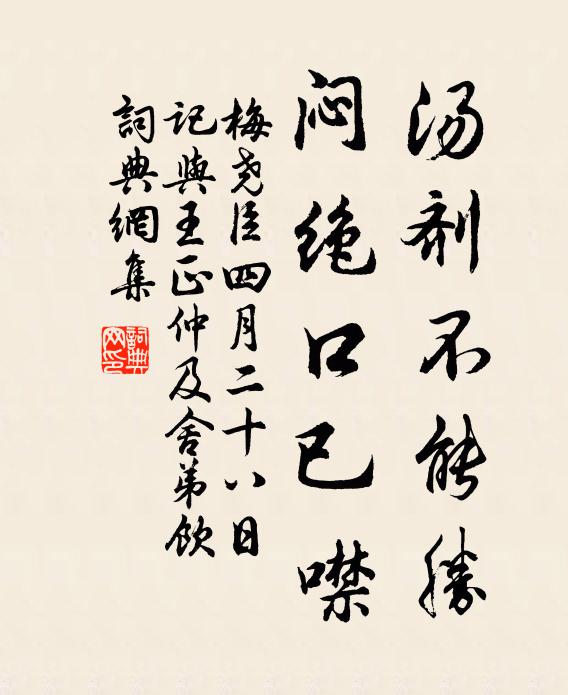 汤剂不能勝
闷绝口已噤
梅尧臣四月二十八日
记與王正仲及舍弟飲
詞典網集
詞典网印